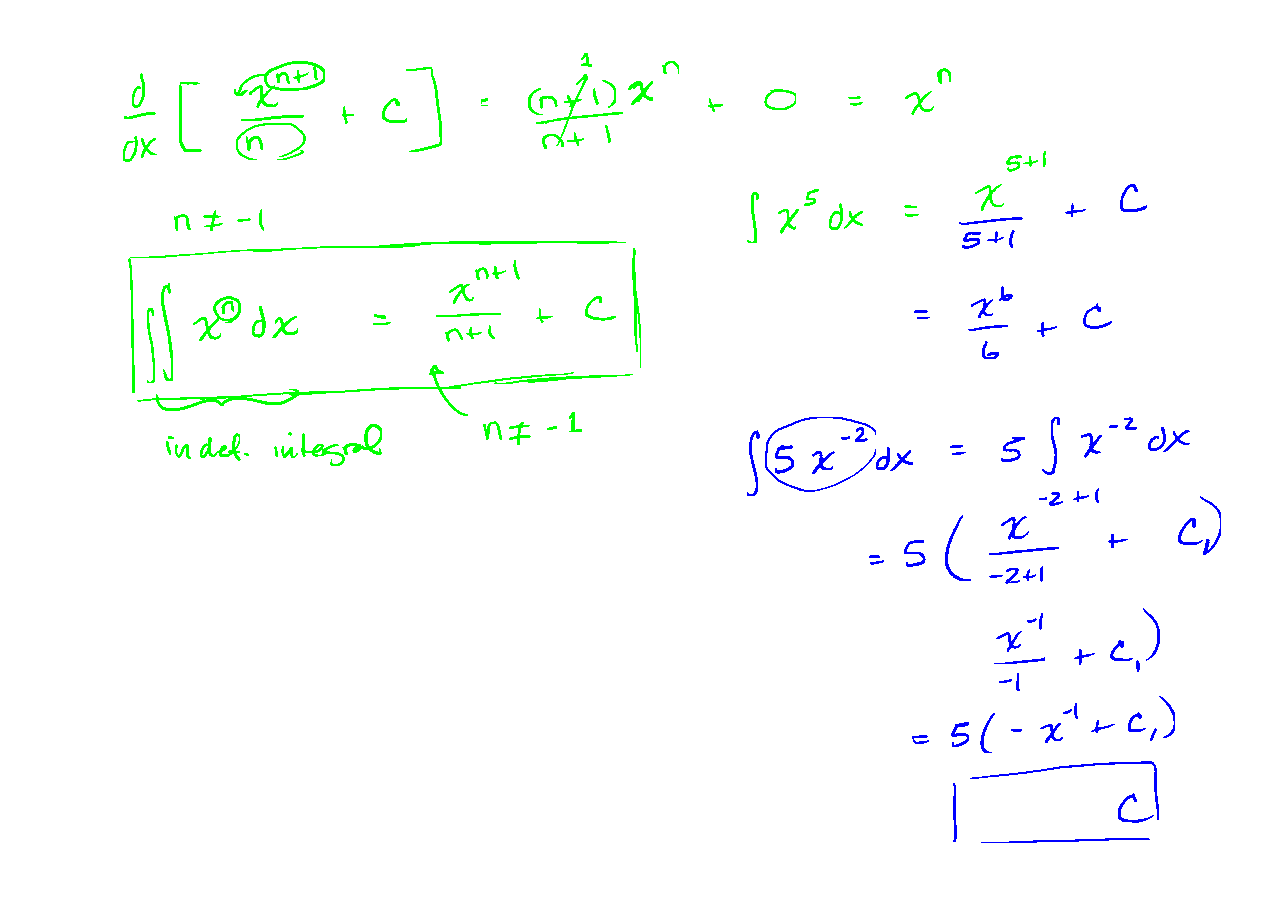 d/dx [ x^(n+1)/n + C ] = (n+1)x^n/(n+1) + 0 = x^n
1
n ≠ -1
∫∫ x^n dx = x^(n+1)/(n+1) + C
indef. integral
n ≠ -1
∫ x^5 dx = x^(5+1)/(5+1) + C
= x^6/6 + C
∫ 5x^-2 dx = 5 ∫ x^-2 dx
= 5 ( x^(-2+1)/(-2+1) + C₁)
x^-1/-1 + C₁)
= 5(-x^-1 + C₁)
C